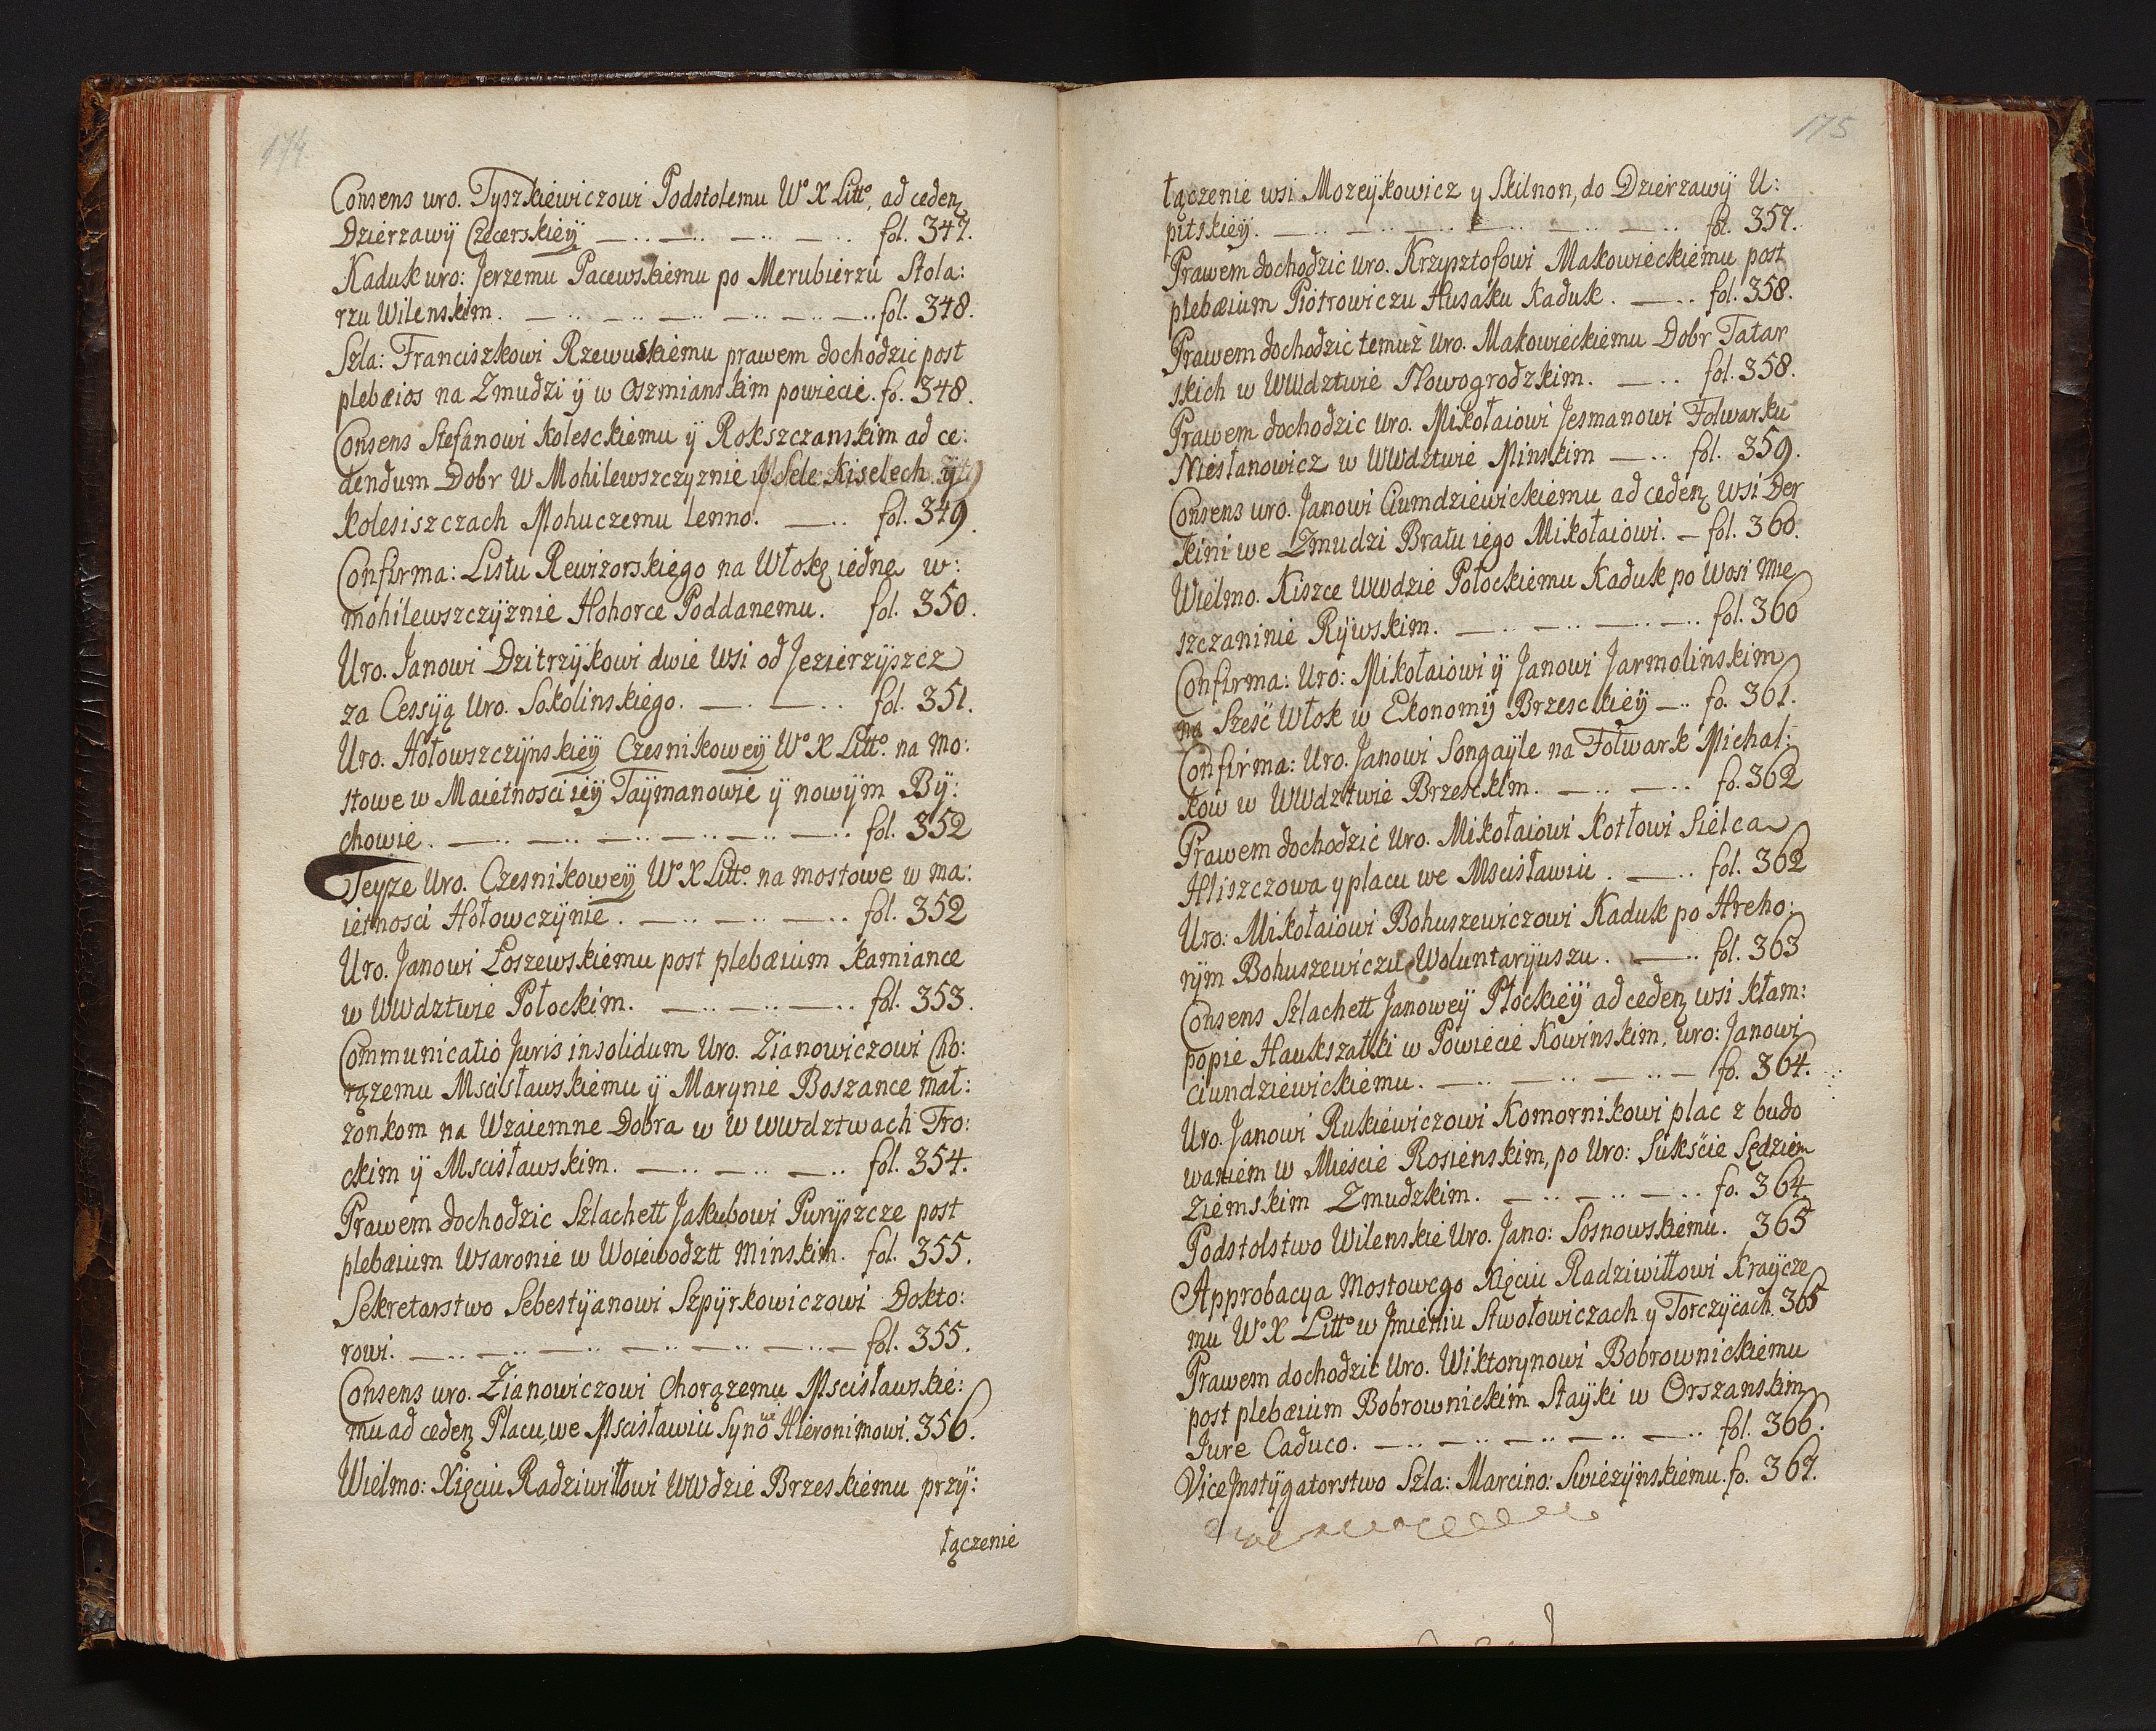 174
Consens uro. Tyszkiewiczowi Podstolemu Wº X Littº, ad cedenꝫ
Dzierzawÿ Czecerskiey fol. 347.
Kaduk uro: Jerzemu Pacewskiemu po Merubierzu Stola:
rzu Wilenskim. fol. 348.
Szla: Franciszkowi Rzewuskiemu prawem dochodzic post
plebæios na Zmudzi ÿ w Oszmianskim powiecie. fo. 348.
Consens Stefanowi Kolesckiemu ÿ Rokszczanskim ad ce:
dendum Dobr W Mohilewszczyznie W Sele Kiselech ÿ
Kolesiszczach Mohuczemu lenno. fol. 349.
Confirma: Listu Rewizorskiego na Włokę iednę w:
mohilewszczÿznie Hohorce Poddanemu. fol. 350.
Uro. Janowi Dzitrzÿkowi dwie wsi od Jezierzÿszcz
za Cessÿą Uro. Sokolinskiego. fol. 351.
Uro. Hołowszczÿnskieÿ Czesnikoweÿ Wº X Littº. na mo:
stowe w Maietnosci ieÿ Taÿmanowie ÿ nowÿm Bÿ:
chowie. fol. 352
Teyze Uro. Czesnikoweÿ Wº X Littº. na mostowe w ma:
ietnosci Hołowczÿnie. fol. 352
Uro. Janowi Łoszewskiemu post plebæium Kamiance
w WWdztwie Połockim. fol. 353.
Communicatio Juris insolidum Uro. Zianowiczowi Cho:
rązemu Mscisławskiemu ÿ Marynie Boszance mał:
zonkom na Wzaiemne Dobra w W WWdztwach Tro:
ckim ÿ Mscisławskim. fol. 354.
Prawem dochodzic Szlachett Jakubowi Puryszcze post
plebæium Wsaronie w Woiewodztt Minskim. fol. 355.
Sekretarstwo Sebestÿanowi Szpÿrkowiczowi Dokto:
rowi. fol. 355.
Consens uro. Zianowiczowi Chorązemu Mscisławskie:
mu ad cedenꝫ Placu, we Mscisławiu Synowi Hieronimowi. 356.
Wielmo: Xięciu Radziwiłłowi WWdzie Brzeskiemu przÿ:
łączenie
175
łączenie wsi Mozeÿkowicz y Skilnon, do Dzierzawÿ U:
pitskieÿ. fol. 357.
Prawem dochodzic uro. Krzysztofowi Makowieckiemu post
plebæium Piotrowiczu Husaku Kaduk. fol. 358.
Prawem dochodzic temuz Uro. Makowieckiemu Dobr Tatar
skich w WWdztwie Nowogrodzkim. fol. 358.
Prawem dochodzic Uro. Mikołaiowi Jesmanowi Folwarku
Niesłanowicz w WWdztwie Minskim fol. 359.
Consens uro. Janowi Ciumdziewickiemu ad cedenꝫ wsi Der
kini we Zmudzi Bratu iego Mikołaiowi. fol. 360.
Wielmo. Kiszce WWdzie Połockiemu Kaduk po Wosi Mie
szczaninie Rÿwskim. fol. 360
Confirma: Uro: Mikołaiowi ÿ Janowi Jarmolinskim
na Szesć Włok w Ekonomiÿ Brzesckieÿ fo. 361.
Confirma: Uro. Janowi Songaÿle na Folwark Michał:
kow w WWdztwie Brzesckim. fo. 362
Prawem dochodzic Uro. Mikołaiowi Kotłowi Sielca
Hliszczowa y placu we Mscisławiu. fol. 362
Uro: Mikołaiowi Bohuszewiczowi Kaduk po Hreho:
rÿm Bohuszewiczu Woluntarÿuszu. fol. 363
Consens Szlachett Janoweÿ Płockieÿ ad cedenꝫ wsi kłam:
popie Haukszatki w Powiecie Kowinskim, uro: Janowi
Ciundziewickiemu. fo. 364.
Uro. Janowi Rukiewiczowi Komornikowi plac z budo
waniem w Miescie Rosienskim, po Uro: Sukscie Sędziem
Ziemskim Zmudzkim. fo. 364
Podstolstwo Wilenskie Uro. Jano: Sosnowskiemu. 365
Approbacya Mostowego Xięciu Radziwiłłowi Kraÿcze
mu Wº X Littº w Jmieniu Stwołowiczach y Torczÿcach. 365
Prawem dochodzic Uro. Wiktorynowi Bobrownickiemu
post plebæium Bobrownickim Staÿki w Orszanskim
Jure Caduco. fol. 366.
ViceJnstÿgatorstwo Szla: Marcino: Swiezÿnskiemu. fo. 367.